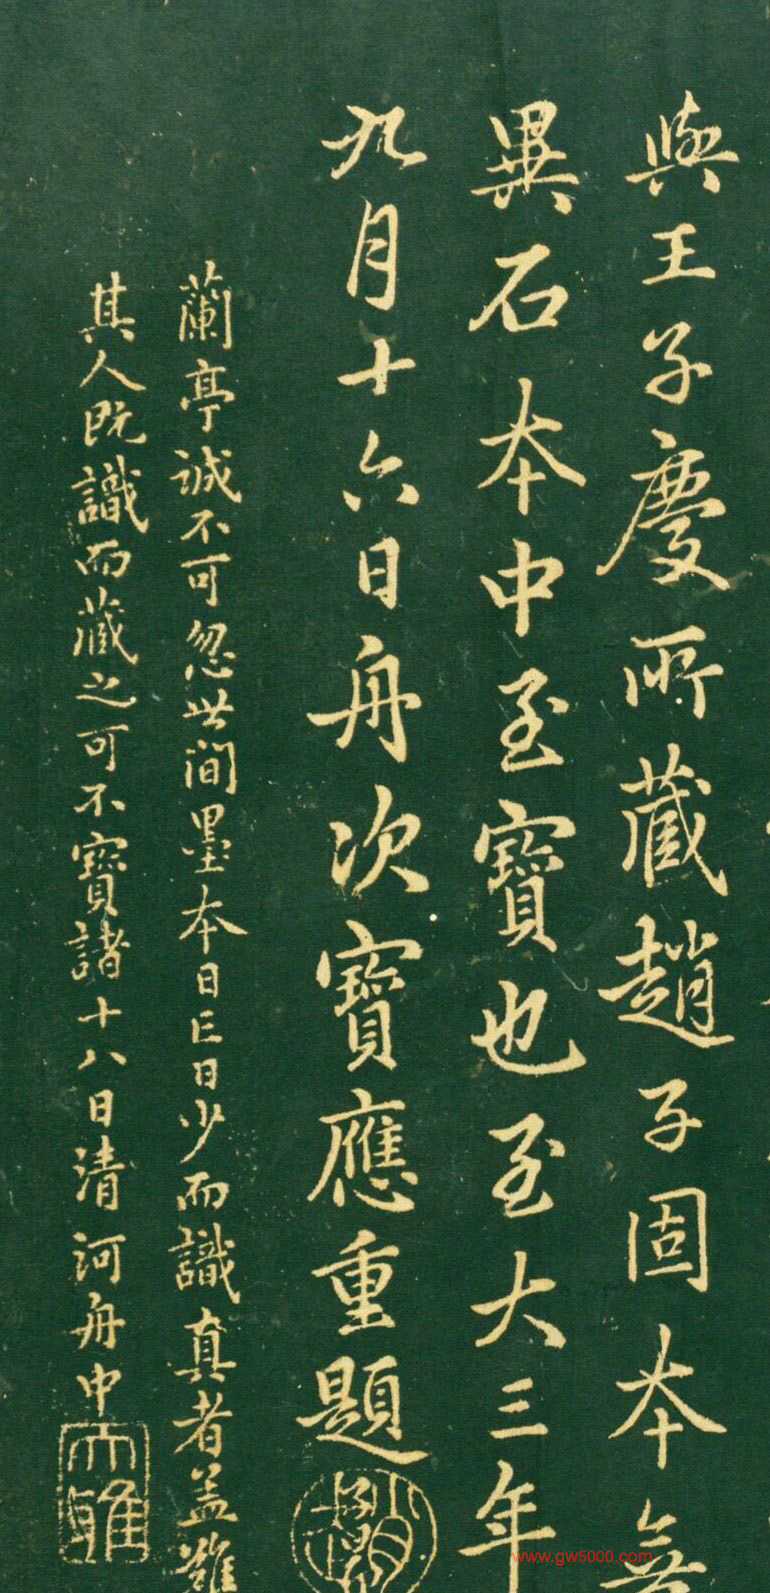 與王子慶所藏趙子固本無
異石本中至寶也至大三年
九月十六日舟次寶應重題
蘭亭誠不可忽世間墨本日亡日少而識真者蓋難
其人既識而藏之可不寶諸十八日清河舟中
大雅
www.gw5000.com